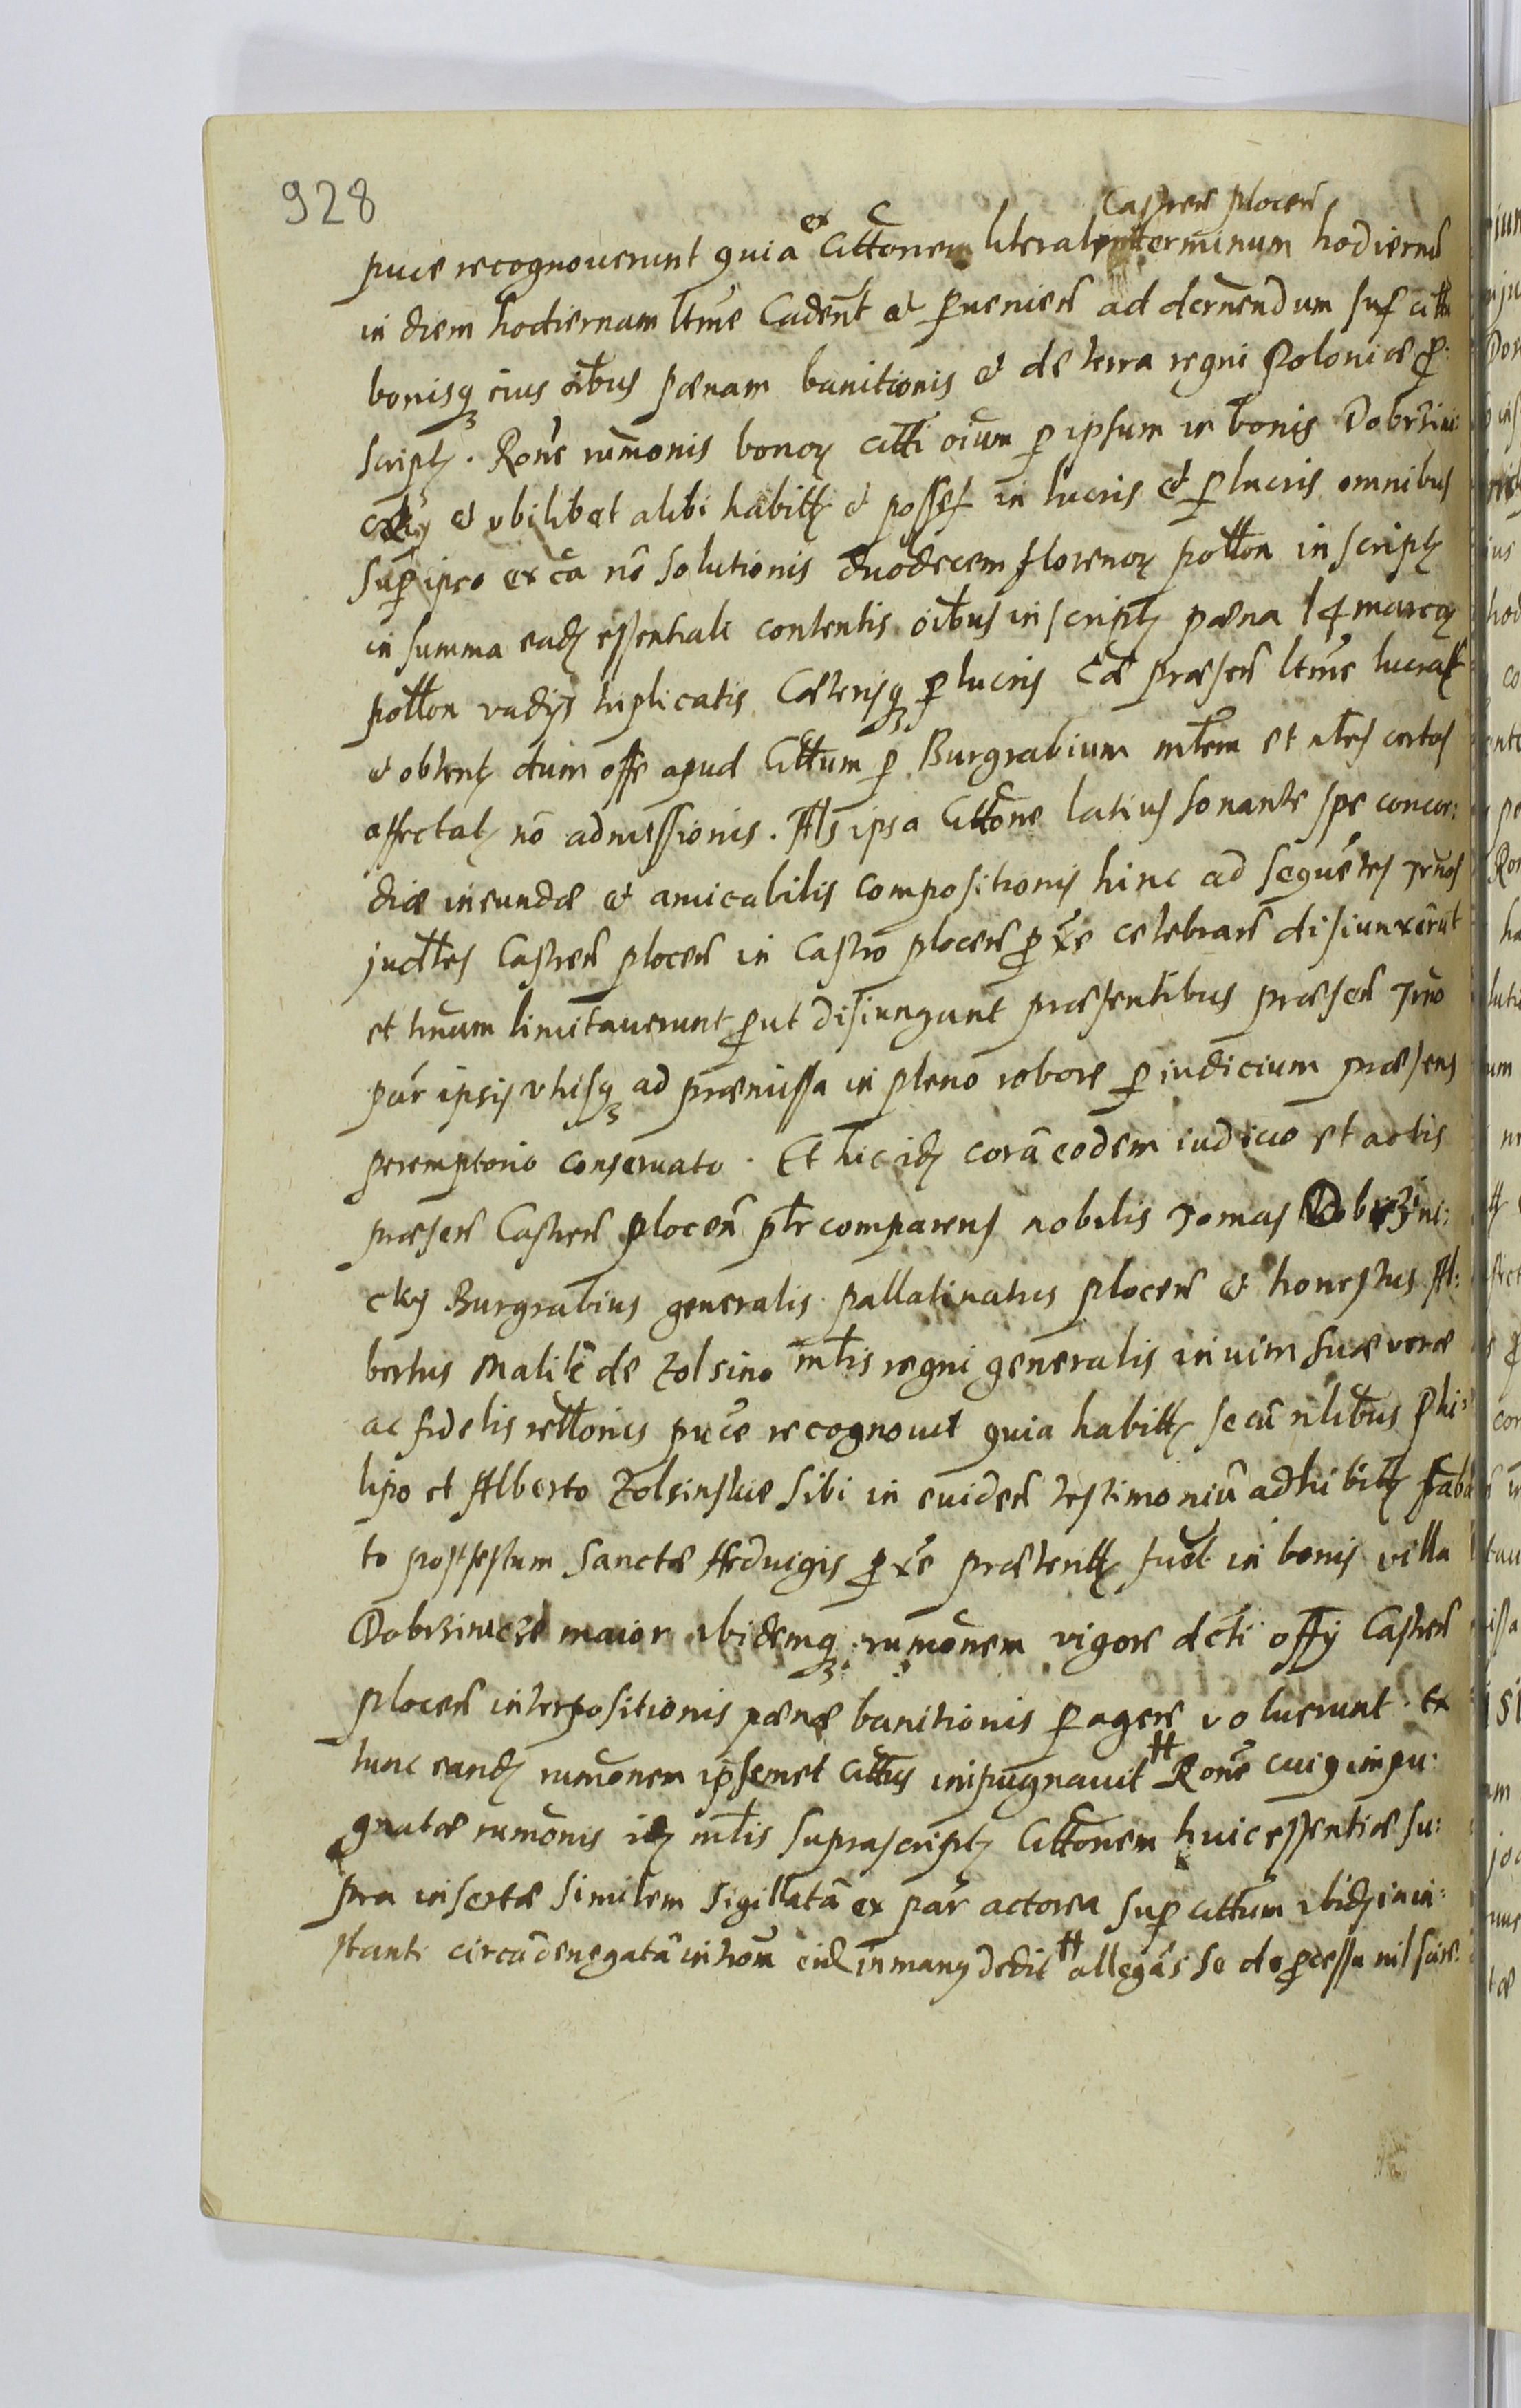 928
ex Castren̄ plocen̄
puce recognouerunt quia Citt̄onem literalem terminum hodiernū
in diem hodiernam ltīme Cadent̄ et ꝑuenien̄ ad dcrnendum suꝑ citt̄u
bonisqꝫ eius oībus pænam banitionis et de terra regni Poloniæ ꝓ:
script̄ꝫ. Rōne rumōnis bonoꝝ citt̄i oium ꝑ ipsum in bonis Dobrzini
et ubilibet alibi habitt̄ꝫ et possess̄ in lucris et ꝑlucris omnibus
suꝑ ipso ex ca nō solutionis duodecem florenoꝝ pott̄on in script̄ꝫ
in summa eadꝫ essentiali contentis oībus inscript̄ꝫ pæna 14 marcaꝝ
pott̄on vadÿs triplicatis Cæterisqꝫ ꝑlucris Eæ præsen̄ ltīme lucrat̄
et obtent̄ꝫ dum offe apud Citt̄um ꝑ Burgrabium mt̄lem et nt̄es certos
affectat̄ꝫ nō admissionis. Als ipsa Citt̄one latius sonante spe concor:
diæ ineundæ et amicabilis compositionis hinc ad sequētes Trnos
judt̄les Castren̄ plocen̄ in Castro plocen̄ ꝓxē celebran̄ disiunxerūt
et trnum limitauerunt ꝓut disiungunt præsentibus præsen̄ Trno
par̄ ipsis vtrisqꝫ ad præmissa in pleno robore ꝑ iudicium præsens
peremptorio conseruato. Et hic idꝫ corā eodem iudicio et actis
præsen̄ Castren̄ plocen̄ pt̄r comparens nobilis Tomas Dobrzini:
ckÿ Burgrabius generalis pallatinatus plocen̄ et honestus Al:
bertus Malik de Zolsino mt̄lis regni generalis in uim suæ veræ
ac fidelis rett̄onis puce recognouit quia habitt̄ꝫ secū nlibus Phi:
lipo et Alberto Zolsinskie sibi in euiden̄ testimoniū adhibitt̄ꝫ Sabb
to post festum Sanctæ Heduigis ꝓxē præteritt̄ꝫ fuit in bonis villa
Dobrzinicze maior ibidemqꝫ rumōnem vigore dc̄ti offÿ Castren̄
plocen̄ interpositionis pænæ banitionis ꝑagere voluerunt. Ex
tunc eandꝫ rumōnem ipsemet Citt̄us inpugnauit # Rōne cuiꝰ impu:
gnatæ rumōnis idꝫ mt̄lis suprascript̄ꝫ Citt̄onem huic essentiæ su:
pra insertæ similem sigillatā ex par̄ actorea suꝑ citt̄um ibidꝫ in in:
stanti circa denegatā intrōm eidꝫ in manꝰ dedit # allegās se de ꝓcessu nil scire.